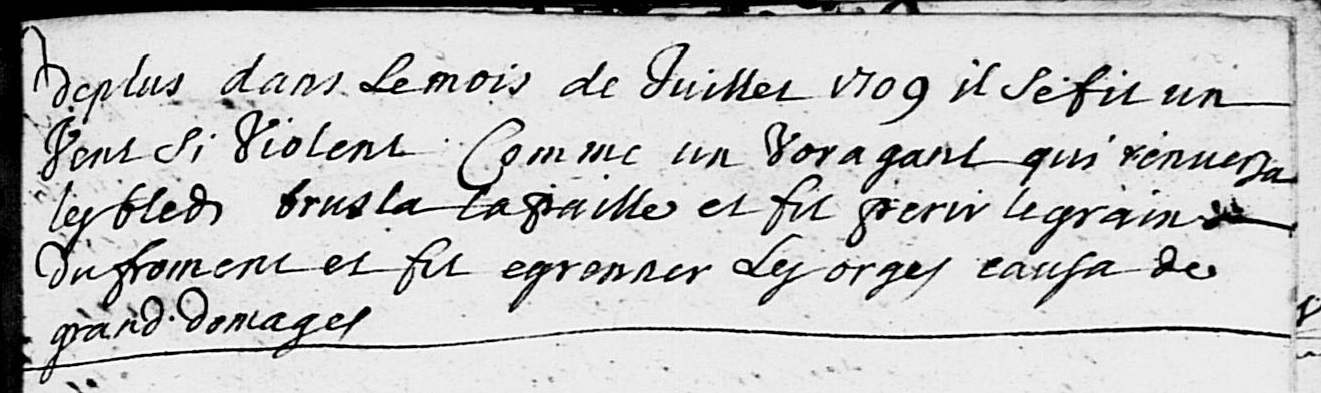 deplus dans Le mois de Juillet 1709 il se fit un
Vent Si Violent Comme un Voragant qui renuersa
les bleds brusla la paille et fit perir le grain
Du froment et fit egrenner Les orges causa de
grand domages